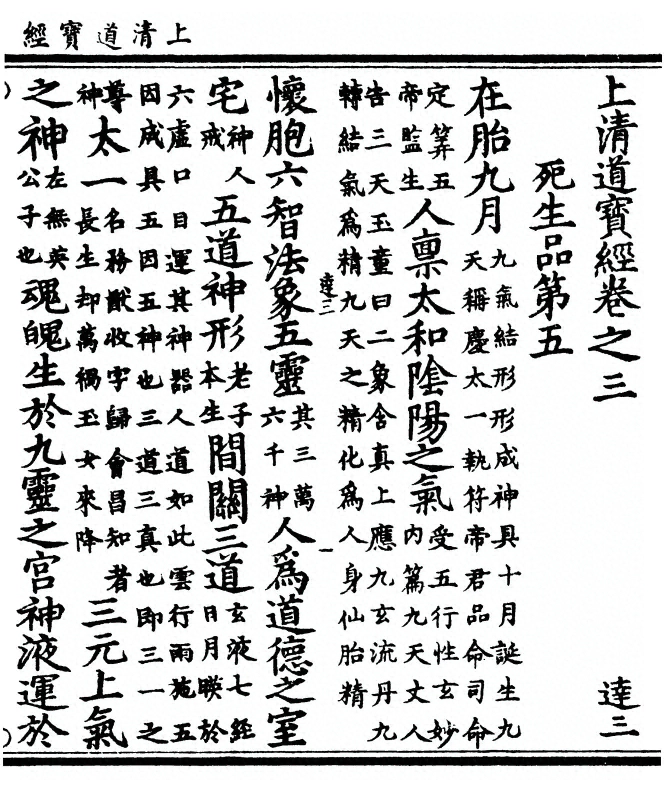 上清道寶經
上清道寶經卷之三 達三
死生品第五
在胎九月九氣結形形成神具十月誕生九天稱慶太一執符帝君品命司命
定筭五帝監生人稟太和陰陽之氣受五行性玄妙内篇九天丈人
告三天玉童曰二象含真上應九玄流丹九轉結氣為精九天之精化為人身仙胎精
達三 一
懷胞六智法象五靈其三萬六千神人為道德之室
宅神人戒五道神形老子本生間關三道玄液七經日月暎於
六虛口目運其神器人道如此雲行雨施五因成具五因五神也三道三真也即三一之
尊神太一名務猷收字歸會昌知者長生却萬禍玉女來降三元上氣
之神左無英公子也魂魄生於九靈之宮神液運於